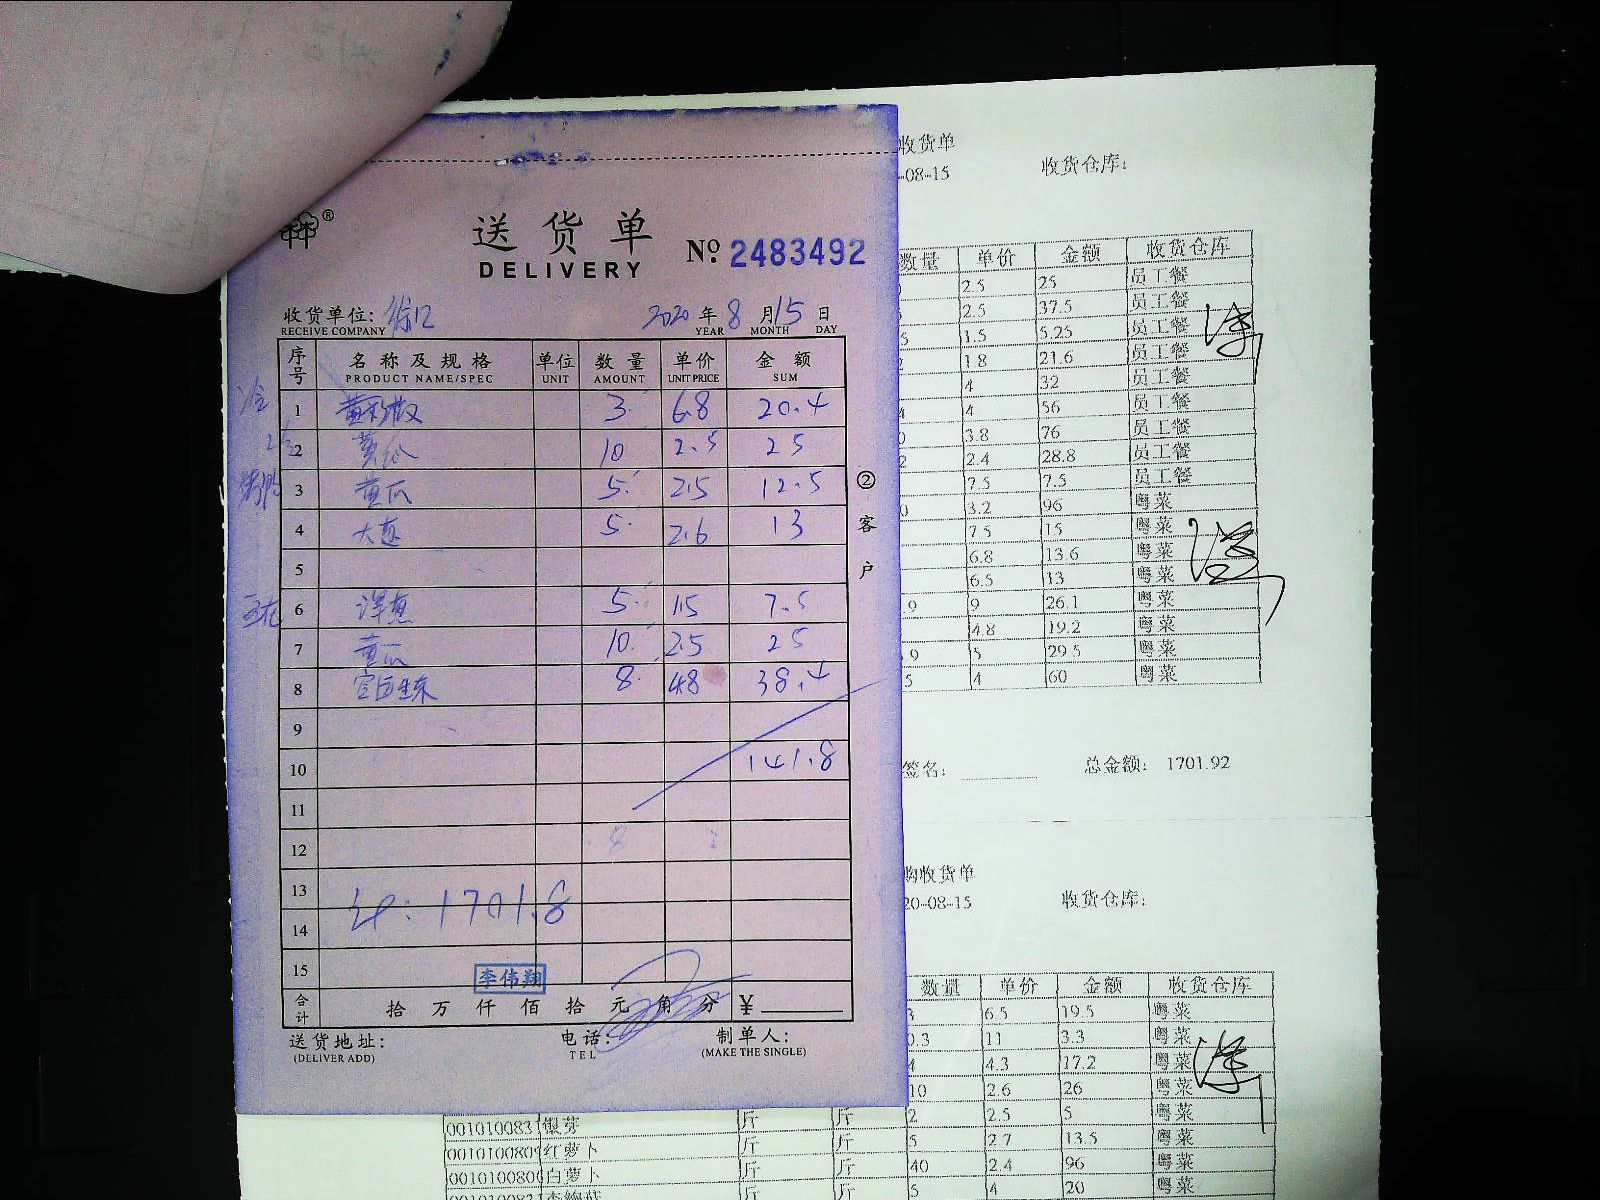 送货单
DELIVERY
№ 2483492
收货单位:
RECEIVE COMPANY
2020 年 8 月 15 日
YEAR MONTH DAY
序号 名称及规格 单位 数量 单价 金额
PRODUCT NAME/SPEC UNIT AMOUNT UNIT PRICE SUM
1 3 6.8 20.4
2 黄瓜 10 2.5 25
3 黄瓜 5 2.5 12.5
4 大葱 5 2.6 13
5
6 洋葱 5 1.5 7.5
7 黄瓜 10 2.5 25
8 8 4.8 38.4
9
10 141.8
11
12
13
14 1701.8
15
李伟翔
合计 拾 万 仟 佰 拾 元 角 分 ¥
送货地址: 电话: 制单人:
(DELIVER ADD) TEL (MAKE THE SINGLE)
②客户
收货单
-08-15 收货仓库:
数量 单价 金额 收货仓库
2.5 25 员工餐
2.5 37.5 员工餐
1.5 5.25 员工餐
1.8 21.6 员工餐
4 32 员工餐
4 56 员工餐
3.8 76 员工餐
2.4 28.8 员工餐
7.5 7.5 员工餐
3.2 96 粤菜
7.5 15 粤菜
6.8 13.6 粤菜
6.5 13 粤菜
9 9 26.1 粤菜
4.8 19.2 粤菜
9 5 29.5 粤菜
5 4 60 粤菜
签名: 总金额: 1701.92
购收货单
20-08-15 收货仓库:
数量 单价 金额 收货仓库
3 6.5 19.5 粤菜
0.3 11 3.3 粤菜
4 4.3 17.2 粤菜
10 2.6 26 粤菜
001010083 银芽 斤 斤 2 2.5 5 粤菜
001010080 红萝卜 斤 斤 5 2.7 13.5 粤菜
001010080 白萝卜 斤 斤 40 2.4 96 粤菜
斤 斤 5 4 20 粤菜